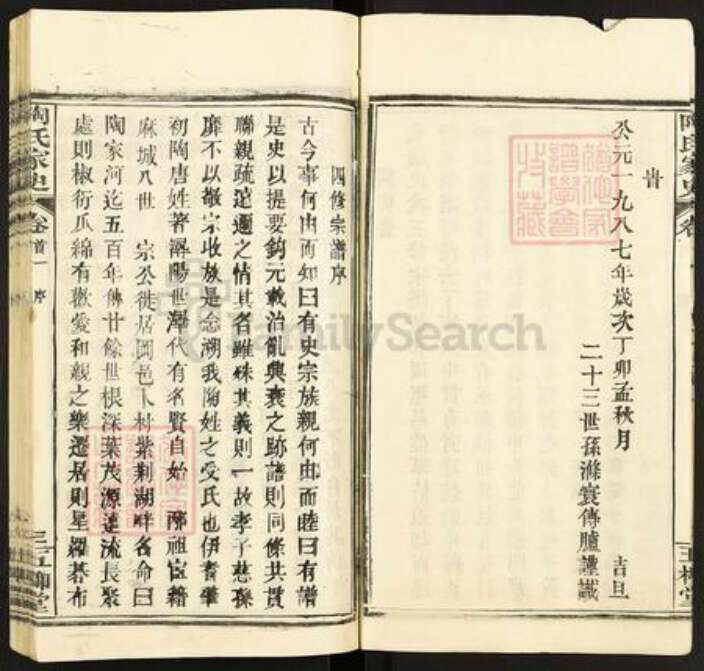 陶氏家史
卷
五柳堂
公元一九八七年歲次丁卯孟秋月
吉旦
二十三世孫滌寰傳臚謹識
四修宗譜序
古今事何由而知曰有史宗族親何由而睦曰有譜
是史以提要鈎元載治亂興衰之跡譜則同條共貫
聯親疏遠邇之情其名雖殊其義則一故孝子慈孫
靡不以敬宗收族是念溯我陶姓之受氏也伊耆肇
初陶唐姓著潯陽世澤代有名賢自始祖宦籍
麻城八世宗公徙居岡邑卜村紫荆湖畔名命曰
陶家河迄五百年傳廿餘世根深葉茂源遠流長聚
處則椒衍瓜綿有歡愛和親之樂遷居則星羅碁布
陶氏家史
卷首一
序
三
五柳堂
FamilySearch